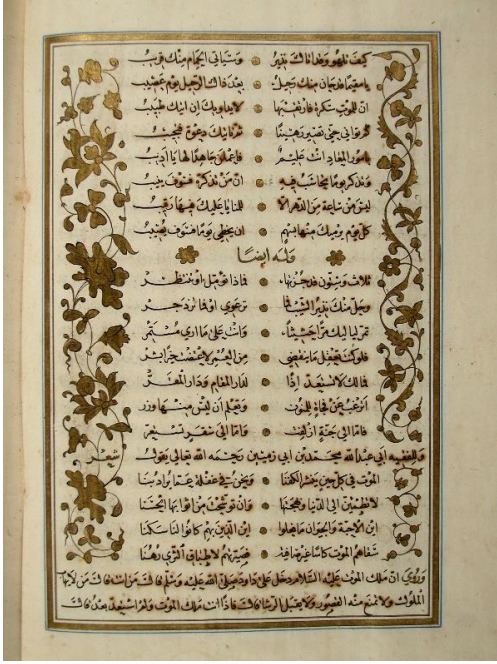 كيف تلهو وقد اتاك نذير وستاتي الحمام منك قريب
يا مقيما قد حان منك رحيل بعد ذاك الرحيل يوم عصيب
ان للموت سكرة فارتقبها لا يداويك ان اتيك طبيب
ثم تواني حتي تصير رهينا ثم تاتيك دعوة فتجيب
بامور المعاد انت عليم فاعملن جاهدا لها يا اديب
وتذكر يوما تحاسب فيه ان من يذكر فسوف ينيب
ليس من ساعة من الدهر الا للمنايا عليك فيها رقيب
كل يوم يرميك منها بسهم ان يخطي يوما فسوف يصيب
وله ايضا
ثلاث وستون قد جزتها فماذا تومل او تنتظر
وحل منك نذير المشيب فما ترعوي او فما تزدجر
تمر لياليك مرا حثيثا وانت علي ما اري مستمر
فلو كنت تعقل ما ينقضي من العمر لاعتضت خيرا بشر
فمالك لا تستعد اذا لدار المقام ودار المقر
اترغب عن فجاة للمنون وتعلم ان ليس منها وزر
فاما الي جنة ازلفت واما الي سقر تستعر
وللفقيه ابي عبد الله محمد بن ابي زمنين رحمه الله تعالي يقول شعر
الموت في كل حين ينشر الكفنا ونحن في غفلة عما يراد بنا
لا تطمئن الي الدنيا وبهجتها وان توشحت من اثوابها الحسنا
اين الاحبة والجيران ما فعلوا اين الذين هم كانوا لنا سكنا
سقاهم الموت كاسا غير صافية فصيرتهم لاطباق الثري رهنا
وروي ان ملك الموت عليه السلام دخل علي داود صلي الله عليه وسلم فقال من انت فقال من لا يهاب
الملوك ولا تمنع منه القصور ولا يقبل الرشا قال فاذا انت ملك الموت ولم استعد بعد قال